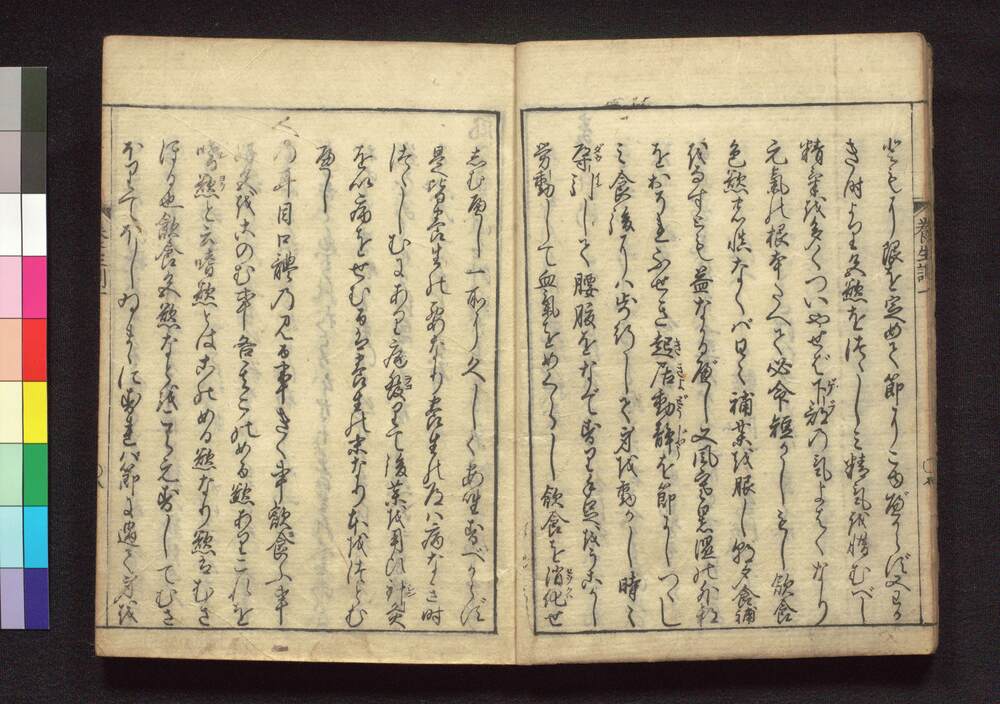 ともに限を定めて節にこゆべからず又わか
き時より色慾をつゝしミ精気を惜むべし
精氣を多くついやせば下部の気よはくなり
元氣の根本たへて必命短かしもし飲食
色慾の慎なくバ日々補薬を服し朝夕食補
をなすとも益なかるべし又風寒暑湿の外邪
をおそれふせぎ起居動静を節にしつゝし
ミ食後にハ歩行して身を動かし時々
導引して腰腹をなですり手足をうごかし
労動して血氣をめぐらし飲食を消化せ
養生訓一
しむべし一所に久しく安坐すべからず
是皆養生の要なり養生の道ハ病なき時
つゝしむにあり病發りて後薬を用ひ針灸
を以病をせむるは養生の末なり本をつとむ
べし
人の耳目口體の見る事きく事飲食ふ事
好色をこのむ事各其このめる慾ありこれを
嗜慾と云嗜慾とはこのめる慾なり慾はむさ
ぼる也飲食色慾などをこらえずしてむさ
ぼりてほしゐまゝにすれバ節に過て身を